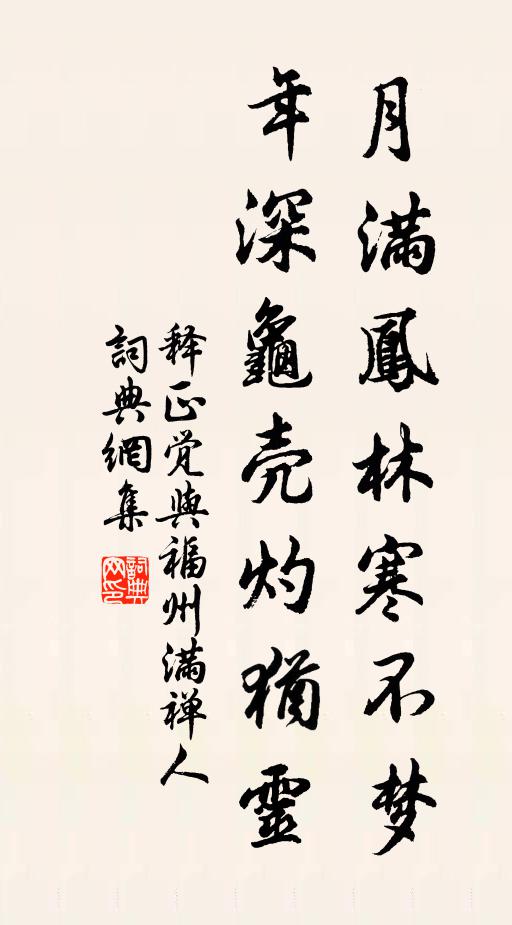 月满鳳林寒不梦
年深龜壳灼猶靈
释正觉與福州满禅人
詞典網集
詞典网印